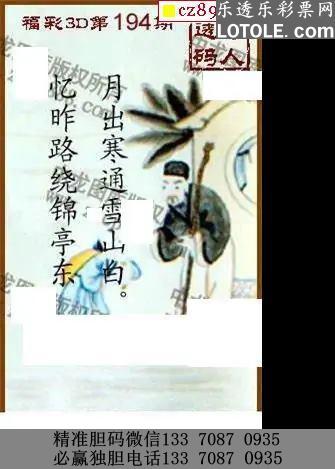 福彩3D第194期
cz89
乐透乐彩票网
LOTOLE.COM
透码人
月出寒通雪山白。
忆昨路绕锦亭东
精准胆码微信133 7087 0935
必赢独胆电话133 7087 0935